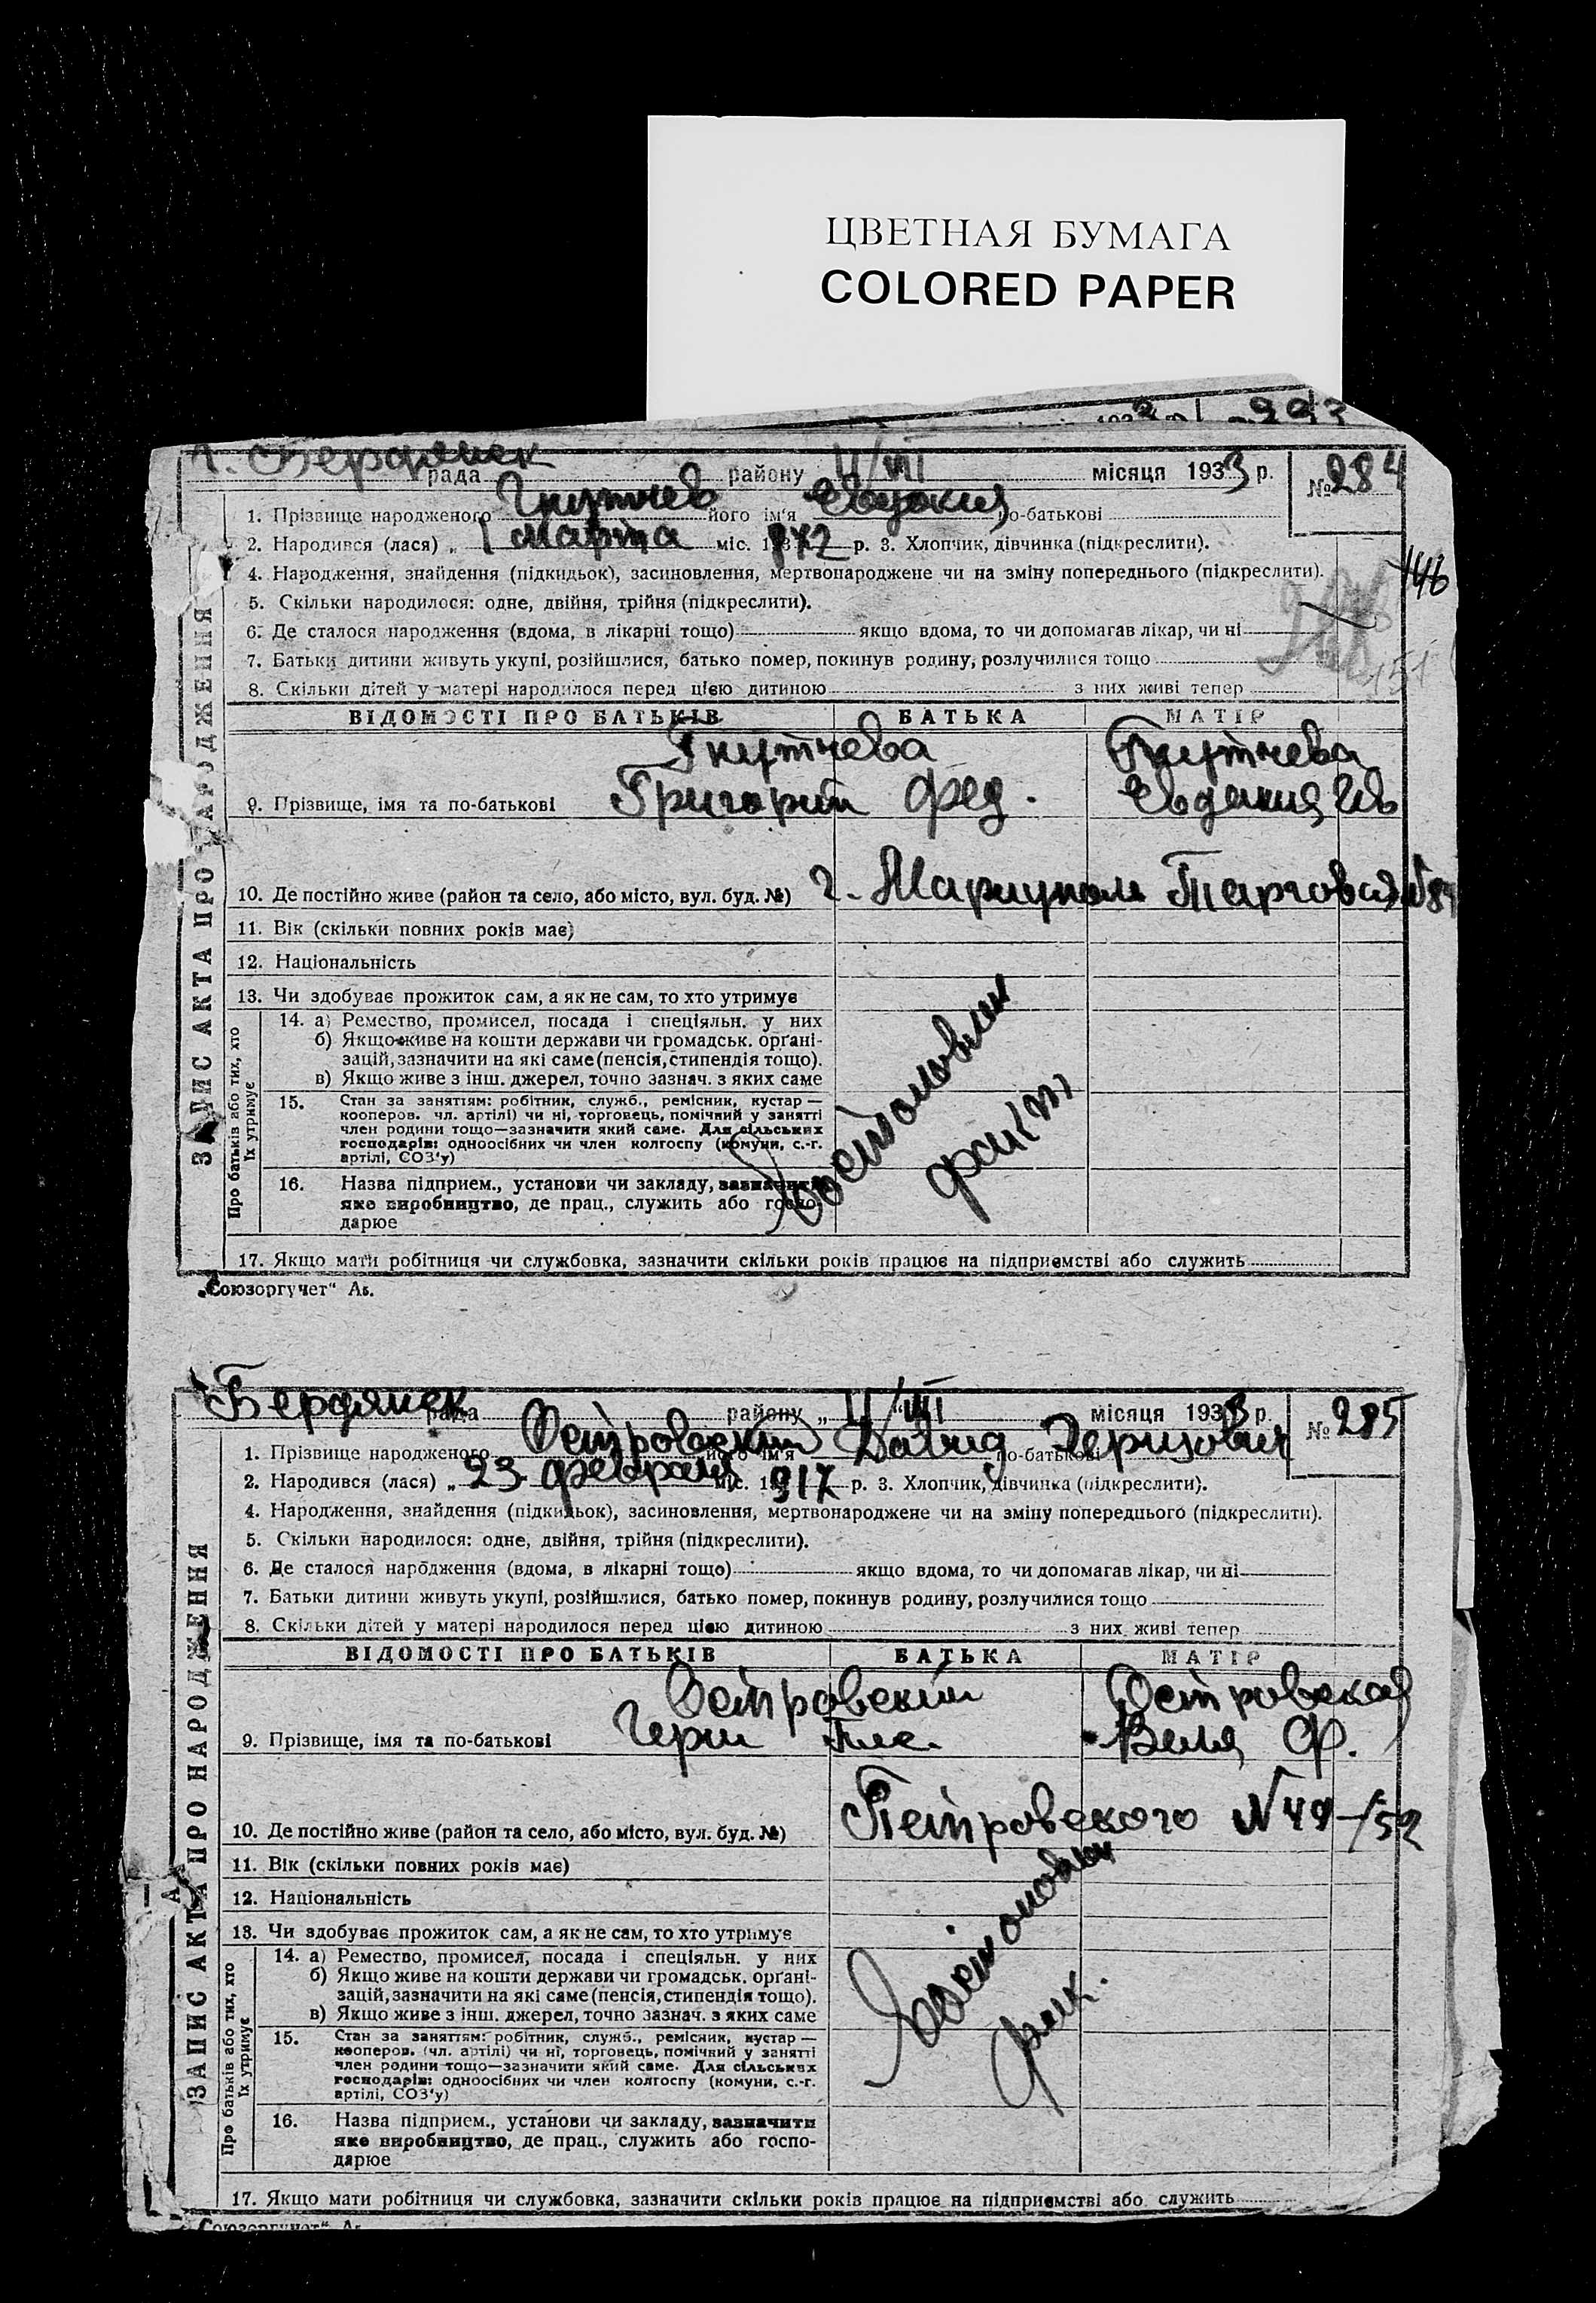 ЦВЕТНАЯ БУМАГА
COLORED PAPER
293
г. Бердянск
рада району II/VIII місяця 1933 р. № 284
1. Прізвище народженого його ім'я по-батькові
2. Народився (лася) „ 1 марта міс. р. 3. Хлопчик, дівчинка (підкреслити).
4. Народження, знайдення (підкидьок), засиновлення, мертвонароджене чи на зміну попереднього (підкреслити). 146
5. Скільки народилося: одне, двійня, трійня (підкреслити).
6. Де сталося народження (вдома, в лікарні тощо) якщо вдома, то чи допомагав лікар, чи ні
7. Батьки дитини живуть укупі, розійшлися, батько помер, покинув родину, розлучилися тощо
8. Скільки дітей у матері народилося перед цією дитиною з них живі тепер 151
ВІДОМОСТІ ПРО БАТЬКІВ БАТЬКА МАТІР
Гнутнева Гнутнева
9. Прізвище, імя та по-батькові Григорий Фед. Евдокия Ив
10. Де постійно живе (район та село, або місто, вул. буд. №) г. Мариуполь Торговая
11. Вік (скільки повних років має)
12. Національність
13. Чи здобуває прожиток сам, а як не сам, то хто утримує
14. а) Ремество, промисел, посада і спеціяльн. у них
б) Якщо живе на кошти держави чи громадськ. орґані-
зацій, зазначити на які саме (пенсія, стипендія тощо).
в) Якщо живе з інш. джерел, точно зазнач. з яких саме
15. Стан за заняттям: робітник, служб., ремісник, кустар —
кооперов. чл. артілі) чи ні, торговець, помічний у занятті
член родини тощо—зазначити який саме. Для сільських
господарів: одноосібних чи член колгоспу (комуни, с.-г.
артілі, СОЗ'у)
16. Назва підприєм., установи чи закладу, зазначити
яке виробництво, де прац., служить або госпо-
дарює
17. Якщо мати робітниця чи службовка, зазначити скільки років працює на підприємстві або служить
ЗАПИС АКТА ПРО НАРОДЖЕННЯ
Про батьків або тих, хто
їх утримує
Востановлен
факт
„Союзоргучет" Аз.
Бердянск
рада району „ II/VIII місяця 1933 р. № 285
1. Прізвище народженого Островский його ім'я Давид по-батькові Герцович
2. Народився (лася) „ 23 февраля міс. 1917 р. 3. Хлопчик, дівчинка (підкреслити).
4. Народження, знайдення (підкидьок), засиновлення, мертвонароджене чи на зміну попереднього (підкреслити).
5. Скільки народилося: одне, двійня, трійня (підкреслити).
6. Де сталося народження (вдома, в лікарні тощо) якщо вдома, то чи допомагав лікар, чи ні
7. Батьки дитини живуть укупі, розійшлися, батько помер, покинув родину, розлучилися тощо
8. Скільки дітей у матері народилося перед цією дитиною з них живі тепер
ВІДОМОСТІ ПРО БАТЬКІВ БАТЬКА МАТІР
Островский Островская
9. Прізвище, імя та по-батькові Герш Веля Ф.
10. Де постійно живе (район та село, або місто, вул. буд. №) Петровского №49-/52
11. Вік (скільки повних років має)
12. Національність
13. Чи здобуває прожиток сам, а як не сам, то хто утримує
14. а) Ремество, промисел, посада і спеціяльн. у них
б) Якщо живе на кошти держави чи громадськ. орґані-
зацій, зазначити на які саме (пенсія, стипендія тощо).
в) Якщо живе з інш. джерел, точно зазнач. з яких саме
15. Стан за заняттям: робітник, служб., ремісник, кустар —
кооперов. (чл. артілі) чи ні, торговець, помічний у занятті
член родини тощо—зазначити який саме. Для сільських
господарів: одноосібних чи член колгоспу (комуни, с.-г.
артілі, СОЗ'у)
16. Назва підприєм., установи чи закладу, зазначити
яке виробництво, де прац., служить або госпо-
дарює
17. Якщо мати робітниця чи службовка, зазначити скільки років працює на підприємстві або служить
ЗАПИС АКТА ПРО НАРОДЖЕННЯ
Про батьків або тих, хто
їх утримує
Востановлен
фак.
„Союзоргучет" Аз.